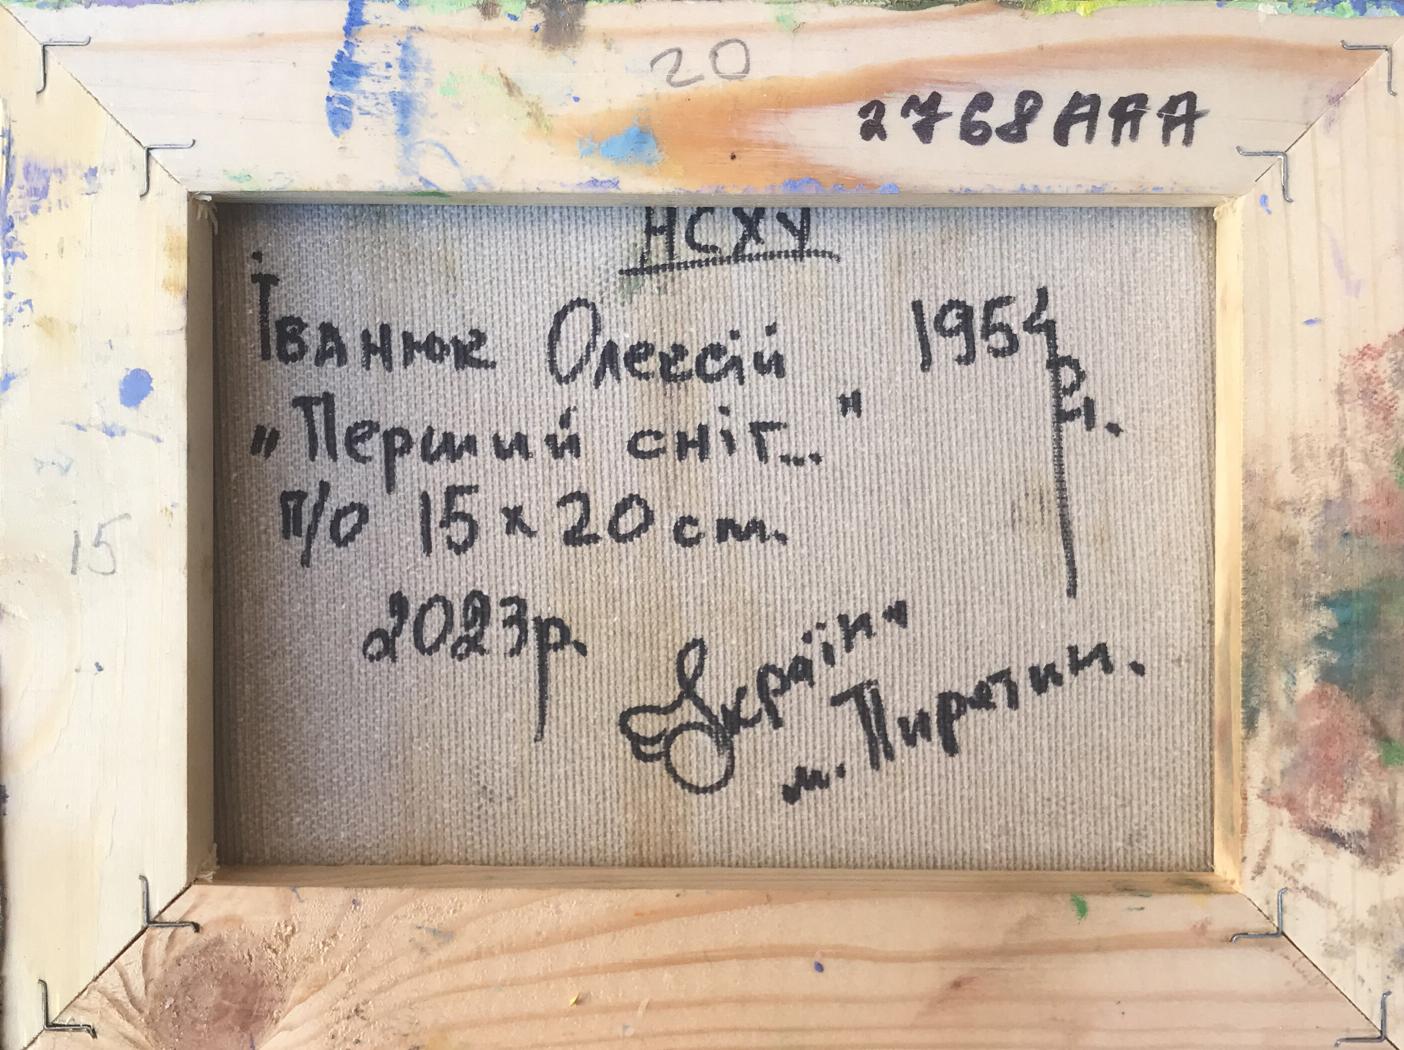 20
2768AAA
НСХУ
Іванюк Олексій 1954 р.н.
„Перший сніг..."
п/о 15 x 20 см.
15
2023р.
Україн"
м. Пирятин.